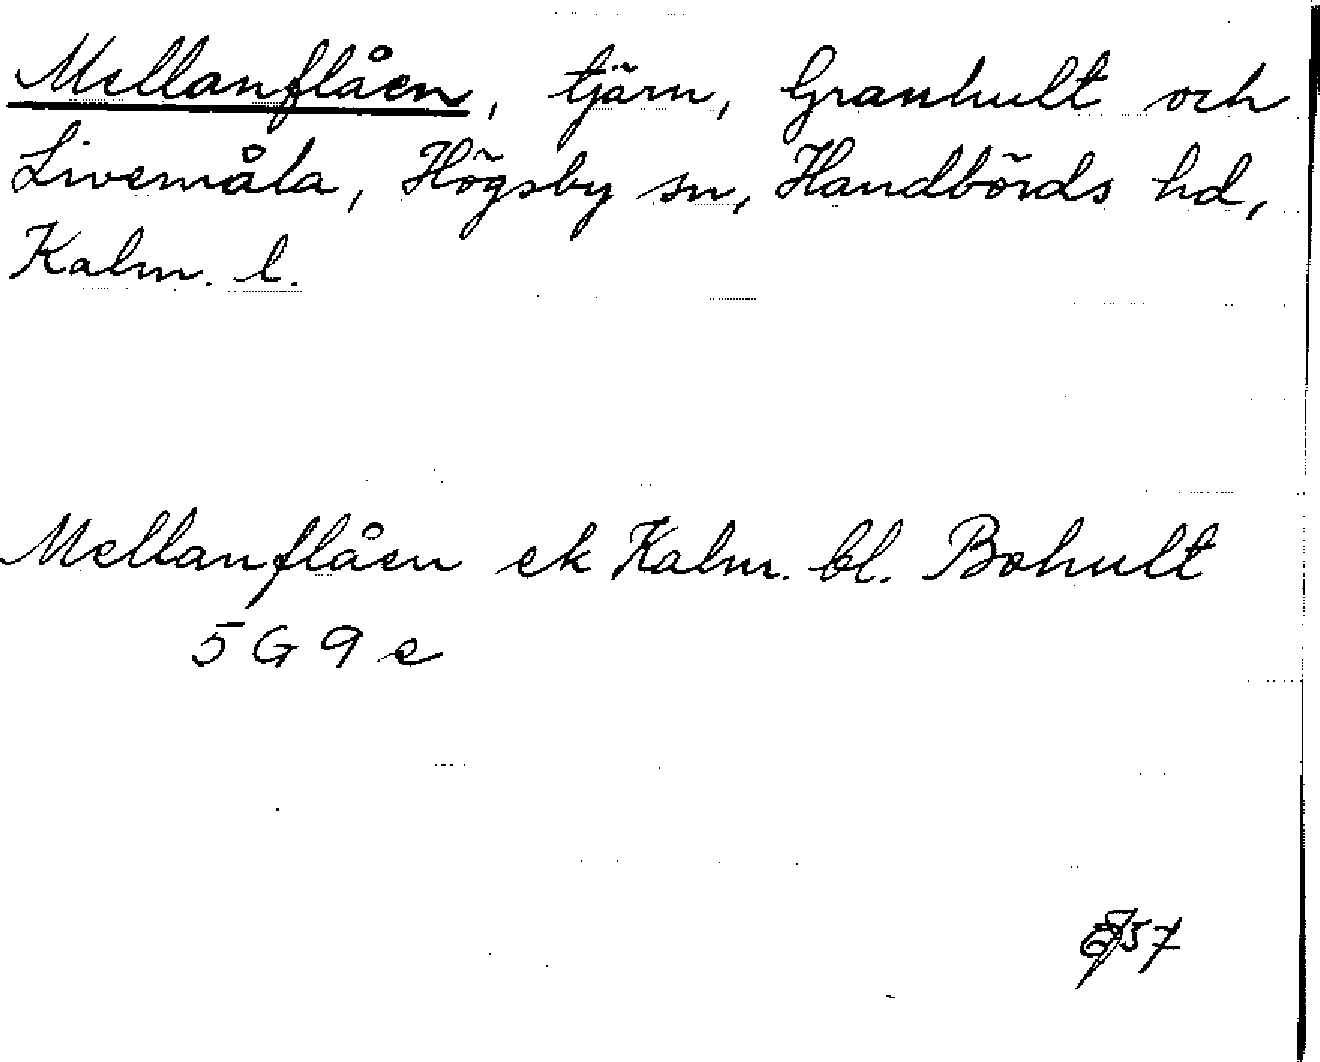 Mellanflåen, tjärn, Granhult och
Livemåla, Högsby sn, Handbörds hd,
Kalm. l.
Mellanflåen ek Kalm. bl. Bohult
5 G 9 e